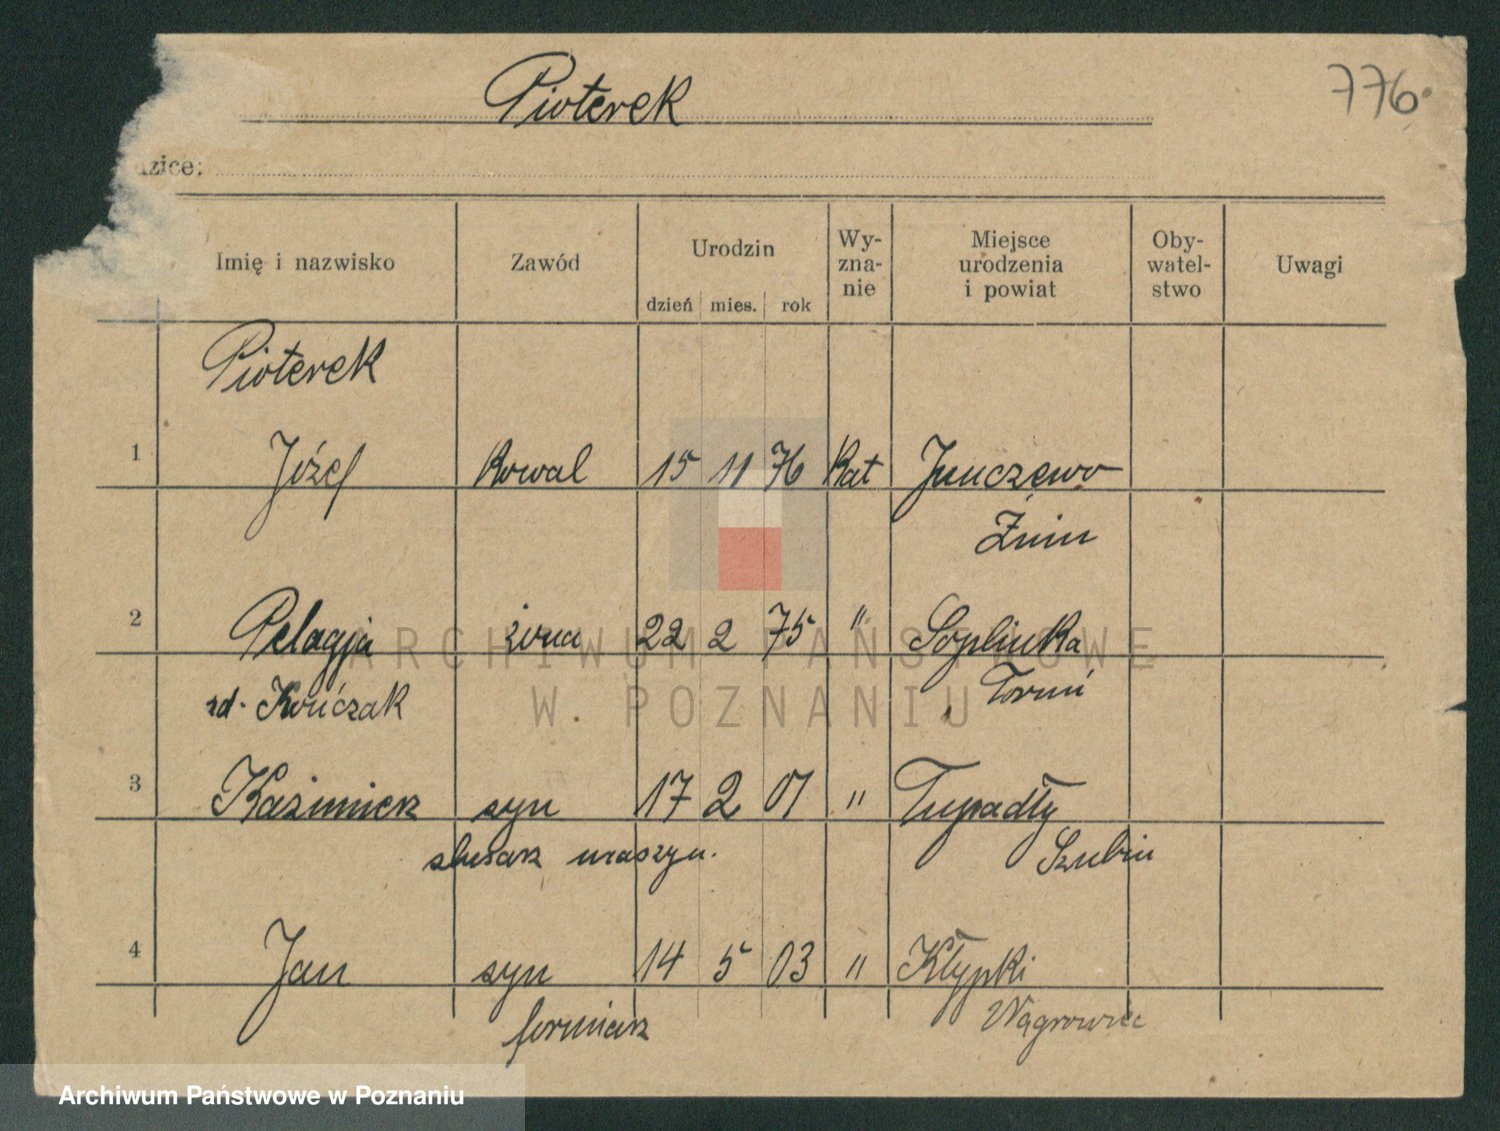 776.
Pioterek
dzice:
Imię i nazwisko Zawód Urodzin Wyznanie Miejsce urodzenia i powiat Obywatelstwo Uwagi
dzień mies. rok
Pioterek
1 Józef Kowal 15 11 76 Kat Junczewo
Żnin
2 Pelagja żona 22 2 75 " Soplinka
zd. Kończak Toruń
3 Kaźmierz syn 17 2 01 " Tupadły
slusarz maszyn. Szubin
4 Jan syn 14 5 03 " Kłypki
formiarz Wągrowiec
ARCHIWUM PAŃSTWOWE
W POZNANIU
Archiwum Państwowe w Poznaniu